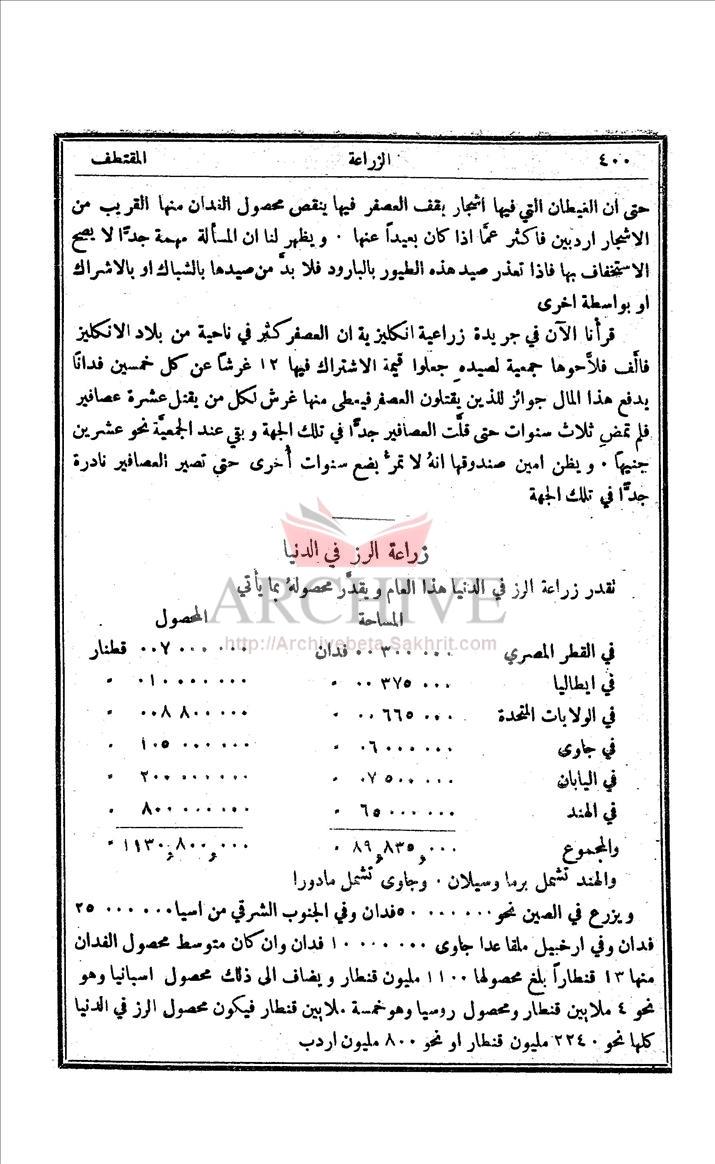 ٤٠٠ الزراعة المقتطف
حتى ان الغيطان التي فيها اشجار يقف العصفر فيها ينقص محصول الفدان منها القريب من
الاشجار اردبين فاكثر عمَّا اذا كان بعيداً عنها ٠ ويظهر لنا ان المسألة مهمة جدًّا لا يصح
الاستخفاف بها فاذا تعذر صيد هذه الطيور بالبارود فلا بدَّ من صيدها بالشباك او بالاشراك
او بواسطة اخرى
قرأنا الآن في جريدة زراعية انكليزية ان العصفر كثر في ناحية من بلاد الانكليز
فالَّف فلاَّحوها جمعية لصيدهِ جعلوا قيمة الاشتراك فيها ١٢ غرشاً عن كل خمسين فدانًا
يدفع هذا المال جوائز للذين يقتلون العصفر فيعطى منها غرش لكل من يقتل عشرة عصافير
فلم تمضِ ثلاث سنوات حتى قلَّت العصافير جدًّا في تلك الجهة وبقي عند الجمعيَّة نحو عشرين
جنيهاً ٠ ويظن امين صندوقها انهُ لا تمرُّ بضع سنوات أُخرى حتى تصير العصافير نادرة
جدًّا في تلك الجهة
زراعة الرز في الدنيا
تقدر زراعة الرز في الدنيا هذا العام ويقدَّر محصولهُ بما يأتي
ARCHIVE
المساحة المحصول
http://Archivebeta.Sakhrit.com
في القطر المصري ٠٠٣٠٠ ٠٠٠ فدان ٠٠٧ ٠٠٠ ٠٠٠ قطنار
في ايطاليا ٠٠ ٣٧٥ ٠٠٠ " ٠١٠ ٠٠٠ ٠٠٠ "
في الولايات المتحدة ٠٠ ٦٦٥ ٠٠٠ " ٠٠٨ ٨٠٠ ٠٠٠ "
في جاوى ٠٦ ٠٠٠ ٠٠٠ " ١٠٥ ٠٠٠ ٠٠٠ "
في اليابان ٠٧ ٥٠٠ ٠٠٠ " ٢٠٠ ٠٠٠ ٠٠٠ "
في الهند ٦٥ ٠٠٠ ٠٠٠ " ٨٠٠ ٠٠٠ ٠٠٠ "
والمجموع ٨٩,٨٣٥,٠٠٠ " ١١٣٠,٨٠٠,٠٠٠ "
والهند تشمل برما وسيلان ٠ وجاوى تشمل مادورا
ويزرع في الصين نحو ٥٠ ٠٠٠ ٠٠٠ فدان وفي الجنوب الشرقي من اسيا ٢٥ ٠٠٠ ٠٠٠
فدان وفي ارخبيل ملقا عدا جاوى ١٠ ٠٠٠ ٠٠٠ فدان وان كان متوسط محصول الفدان
منها ١٣ قنطاراً بلغ محصولها ١١٠٠ مليون قنطار ويضاف الى ذلك محصول اسبانيا وهو
نحو ٤ ملايين قنطار ومحصول روسيا وهو خمسة ملايين قنطار فيكون محصول الرز في الدنيا
كلها نحو ٢٢٤٠ مليون قنطار او نحو ٨٠٠ مليون اردب